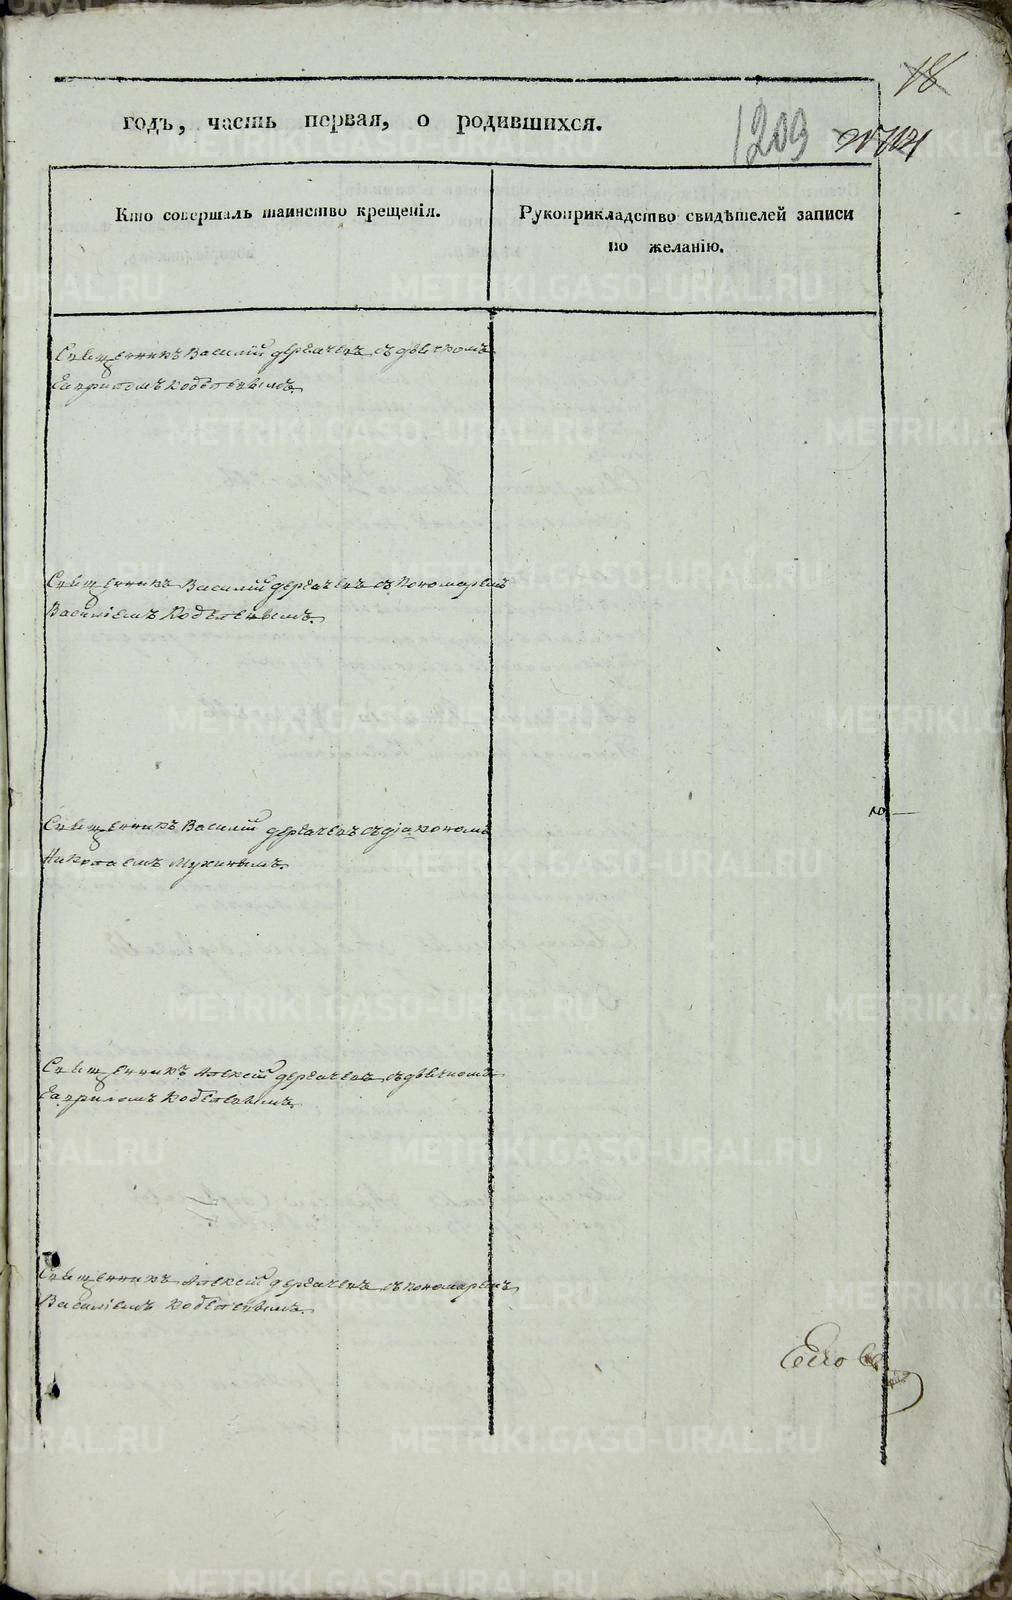 18
годъ, часть первая, о родившихся.
1209
Кто совершалъ таинство крещенія.
Рукоприкладство свидѣтелей записи
по желанію.
Священникъ Василій Дергачевъ съ дьячкомъ
Гавриломъ Кобелевымъ.
Священникъ Василий Дергачевъ съ пономаремъ
Василіемъ Кобелевымъ.
Священникъ Василий Дергачевъ съ діакономъ
Николаемъ Мухинымъ.
Священникъ Алексій Дергачевъ съ дьячкомъ
Гавриломъ Кобелевымъ.
Священникъ Алексій Дергачевъ съ пономаремъ
Василіемъ Кобелевымъ.
METRIKI.GASO-URAL.RU